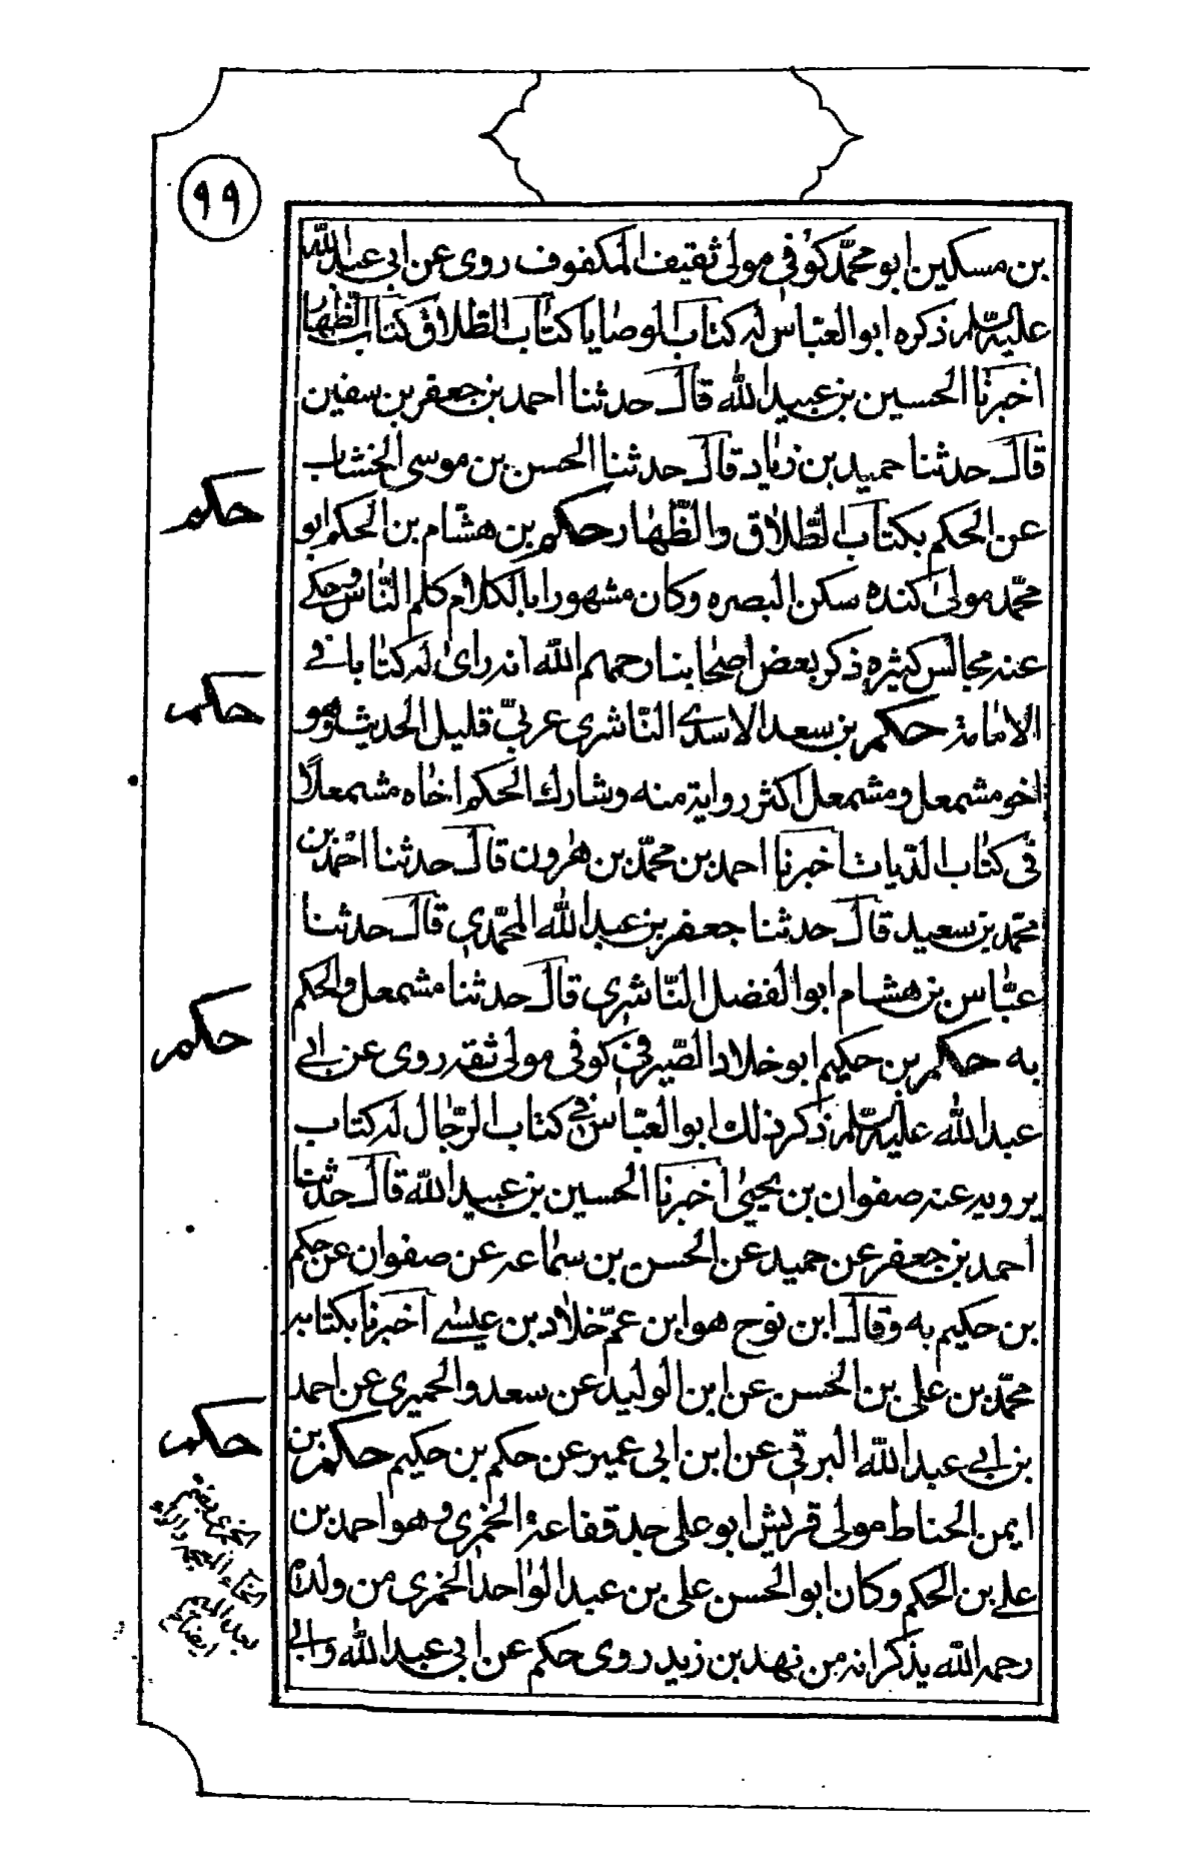 ٩٩
بن مسكين ابو محمّد كوفي مولى ثقيف المكفوف روى عن ابي عبد الله
عليه السلم ذكره ابو العبّاس له كتاب الوصايا كتاب الطّلاق كتاب الظّهار
اخبرنا الحسين بن عبيد الله قال حدثنا احمد بن جعفر بن سفين
قال حدثنا حميد بن زياد قال حدثنا الحسن بن موسى الخشاب
عن الحكم بكتاب الطّلاق والظّهار حكم بن هشّام بن الحكم ابو
محمّد مولى كنده سكن البصره وكان مشهورا بالكلام كلم النّاس وحكي
عنه مجالس كثيره ذكر بعض اصحابنا رحمهم الله انه راى له كتابا في
الامامة حكم بن سعد الاسدي النّاشرى عربيّ قليل الحديث وهو
اخو مشمعل ومشمعل اكثر رواية منه وشارك الحكم اخاه مشمعلًا
في كتاب الدّيات اخبرنا احمد بن محمّد بن هرون قال حدثنا احمد بن
محمّد بن سعيد قال حدثنا جعفر بن عبد الله المحمّدي قال حدثنا
عبّاس بن هشام ابو الفضل النّاشري قال حدثنا مشمعل والحكم
به حكم بن حكيم ابو خلاد الصّيرفي كوفي مولى ثقة روى عن ابي
عبد الله عليه السلم ذكر ذلك ابو العبّاس في كتاب الرّجال له كتاب
يرويه عنه صفوان بن يحيى اخبرنا الحسين بن عبيد الله قال حدثنا
احمد بن جعفر عن حميد عن الحسن بن سماعه عن صفوان عن حكم
بن حكيم به وقال ابن نوح هو ابن عمّ خلاد بن عيسى اخبرنا بكتابه
محمّد بن على بن الحسن عن ابن الوليد عن سعد والحميرى عن احمد
بن ابي عبد الله البرقي عن ابن ابى عمير عن حكم بن حكيم حكم بن
ايمن الحناط مولى قريش ابو على جد قفاعة الخمرى وهو احمد بن
علي بن الحكم وكان ابو الحسن على بن عبد الواحد الخمرى من ولده
رحمه الله يذكر انه من نهد بن زيد روى حكم عن ابى عبد الله وابي
حكم
حكم
حكم
حكم
الخمرى بفتح
الخاء المعجمه والراء
بعد الميم
ايضاح